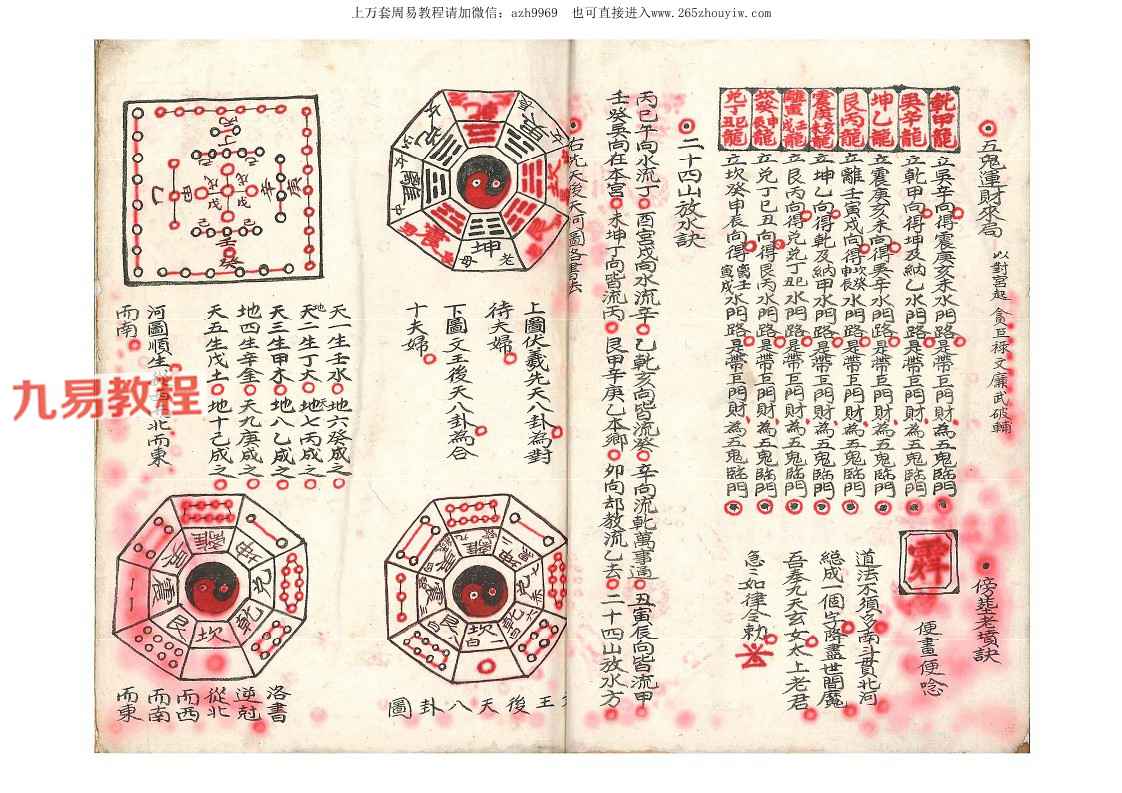 上万套周易教程请加微信：azh9969　也可直接进入www.265zhouyiw.com
五鬼運財來局
以對宮起 貪巨祿文廉武破輔
乾甲龍 立巽辛向得震庚亥未水門路是帶巨門財為五鬼臨門
巽辛龍 立乾甲向得坤及納乙水門路是帶巨門財為五鬼臨門
坤乙龍 立震庚亥未向得巽辛水門路是帶巨門財為五鬼臨門
艮丙龍 立離壬寅戌向得坎癸申辰水門路是帶巨門財為五鬼臨門
震庚亥未龍 立坤乙向得乾及納甲水門路是帶巨門財為五鬼臨門
離寅壬戌龍 立艮丙向得兌丁巳丑水門路是帶巨門財為五鬼臨門
坎癸申辰龍 立兌丁巳丑向得艮丙水門路是帶巨門財為五鬼臨門
兌丁巳丑龍 立坎癸申辰向得離壬寅戌水門路是帶巨門財為五鬼臨門
傍塟老墳訣
便畫便唸
道法不須多南斗貫北河
總成一個字降盡世間魔
吾奉九天玄女太上老君
急急如律令勅
二十四山放水訣
丙巳午向水流丁 酉宮戌向水流辛 乙乾亥向皆流癸 辛向流乾萬事通 丑寅辰向皆流甲
壬癸巽向在本宮 未坤丁向皆流丙 艮甲辛庚乙本鄉 卯向却教流乙去 二十四山放水方
右先天後天河圖洛書法
上圖伏羲先天八卦為對
待夫婦
下圖文王後天八卦為合
十夫婦
天一生壬水 地六癸成之
地二生丁火 天七丙成之
天三生甲木 地八乙成之
地四生辛金 天九庚成之
天五生戊土 地十己成之
河圖順生從西北而東
而南
王後天八卦圖
洛書
逆尅
從北
而西
而南
而東
坤
老
母
離
震
離
坤
兌
乾
坎
艮
震
巽
坎
九易教程